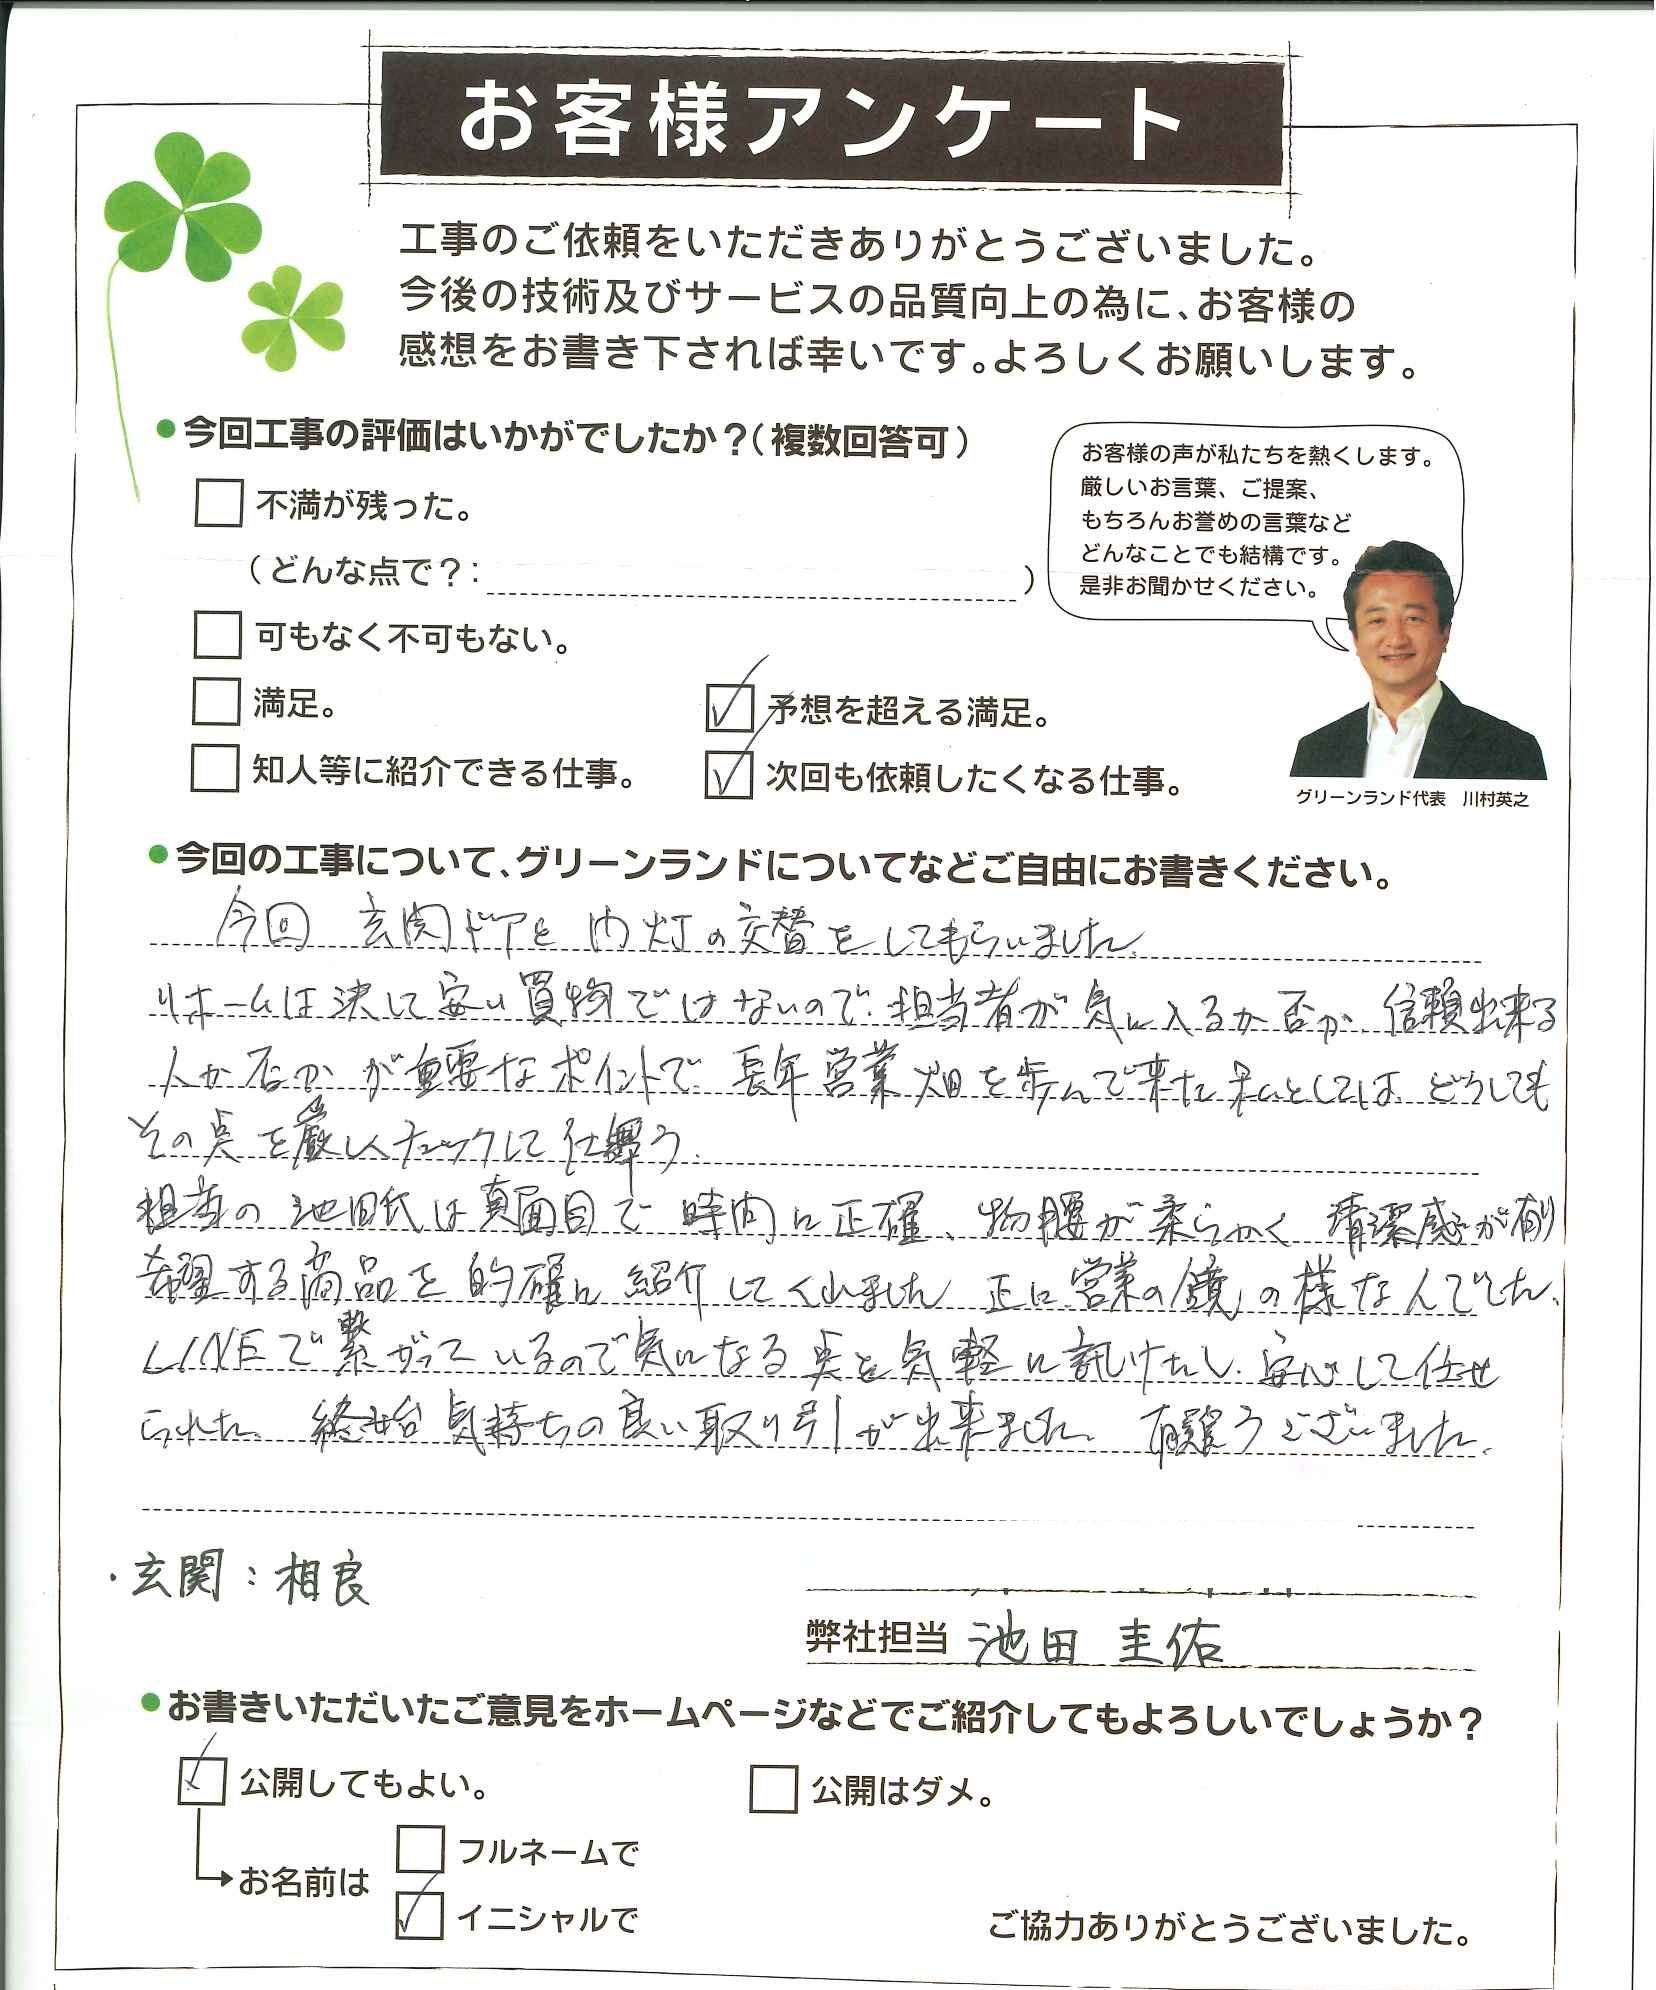 お客様アンケート
工事のご依頼をいただきありがとうございました。
今後の技術及びサービスの品質向上の為に、お客様の
感想をお書き下されば幸いです。よろしくお願いします。
●今回工事の評価はいかがでしたか？（複数回答可）
不満が残った。
（どんな点で？：　　　）
可もなく不可もない。
満足。
予想を超える満足。
知人等に紹介できる仕事。
次回も依頼したくなる仕事。
お客様の声が私たちを熱くします。
厳しいお言葉、ご提案、
もちろんお誉めの言葉など
どんなことでも結構です。
是非お聞かせください。
グリーンランド代表　川村英之
●今回の工事について、グリーンランドについてなどご自由にお書きください。
今回 玄関ドアと内灯の交替をしてもらいました。
リホームは決して安い買物ではないので、担当者が気に入るか否か、信頼出来る
人か否かが重要なポイントで、長年営業畑を歩んで来た私としては、どうしても
その点を厳しくチェックして仕舞う。
担当の池田氏は真面目で時間に正確、物腰が柔らかく清潔感が有り
希望する商品を的確に紹介してくれました 正に「営業の鏡」の様な人でした。
LINEで繋がっているので気になる点を気軽に訊けたし、安心して任せ
られた。終始気持ちの良い取り引が出来ました。有難うございました。
・玄関：相良
弊社担当 池田 圭佑
●お書きいただいたご意見をホームページなどでご紹介してもよろしいでしょうか？
公開してもよい。
公開はダメ。
お名前は
フルネームで
イニシャルで
ご協力ありがとうございました。